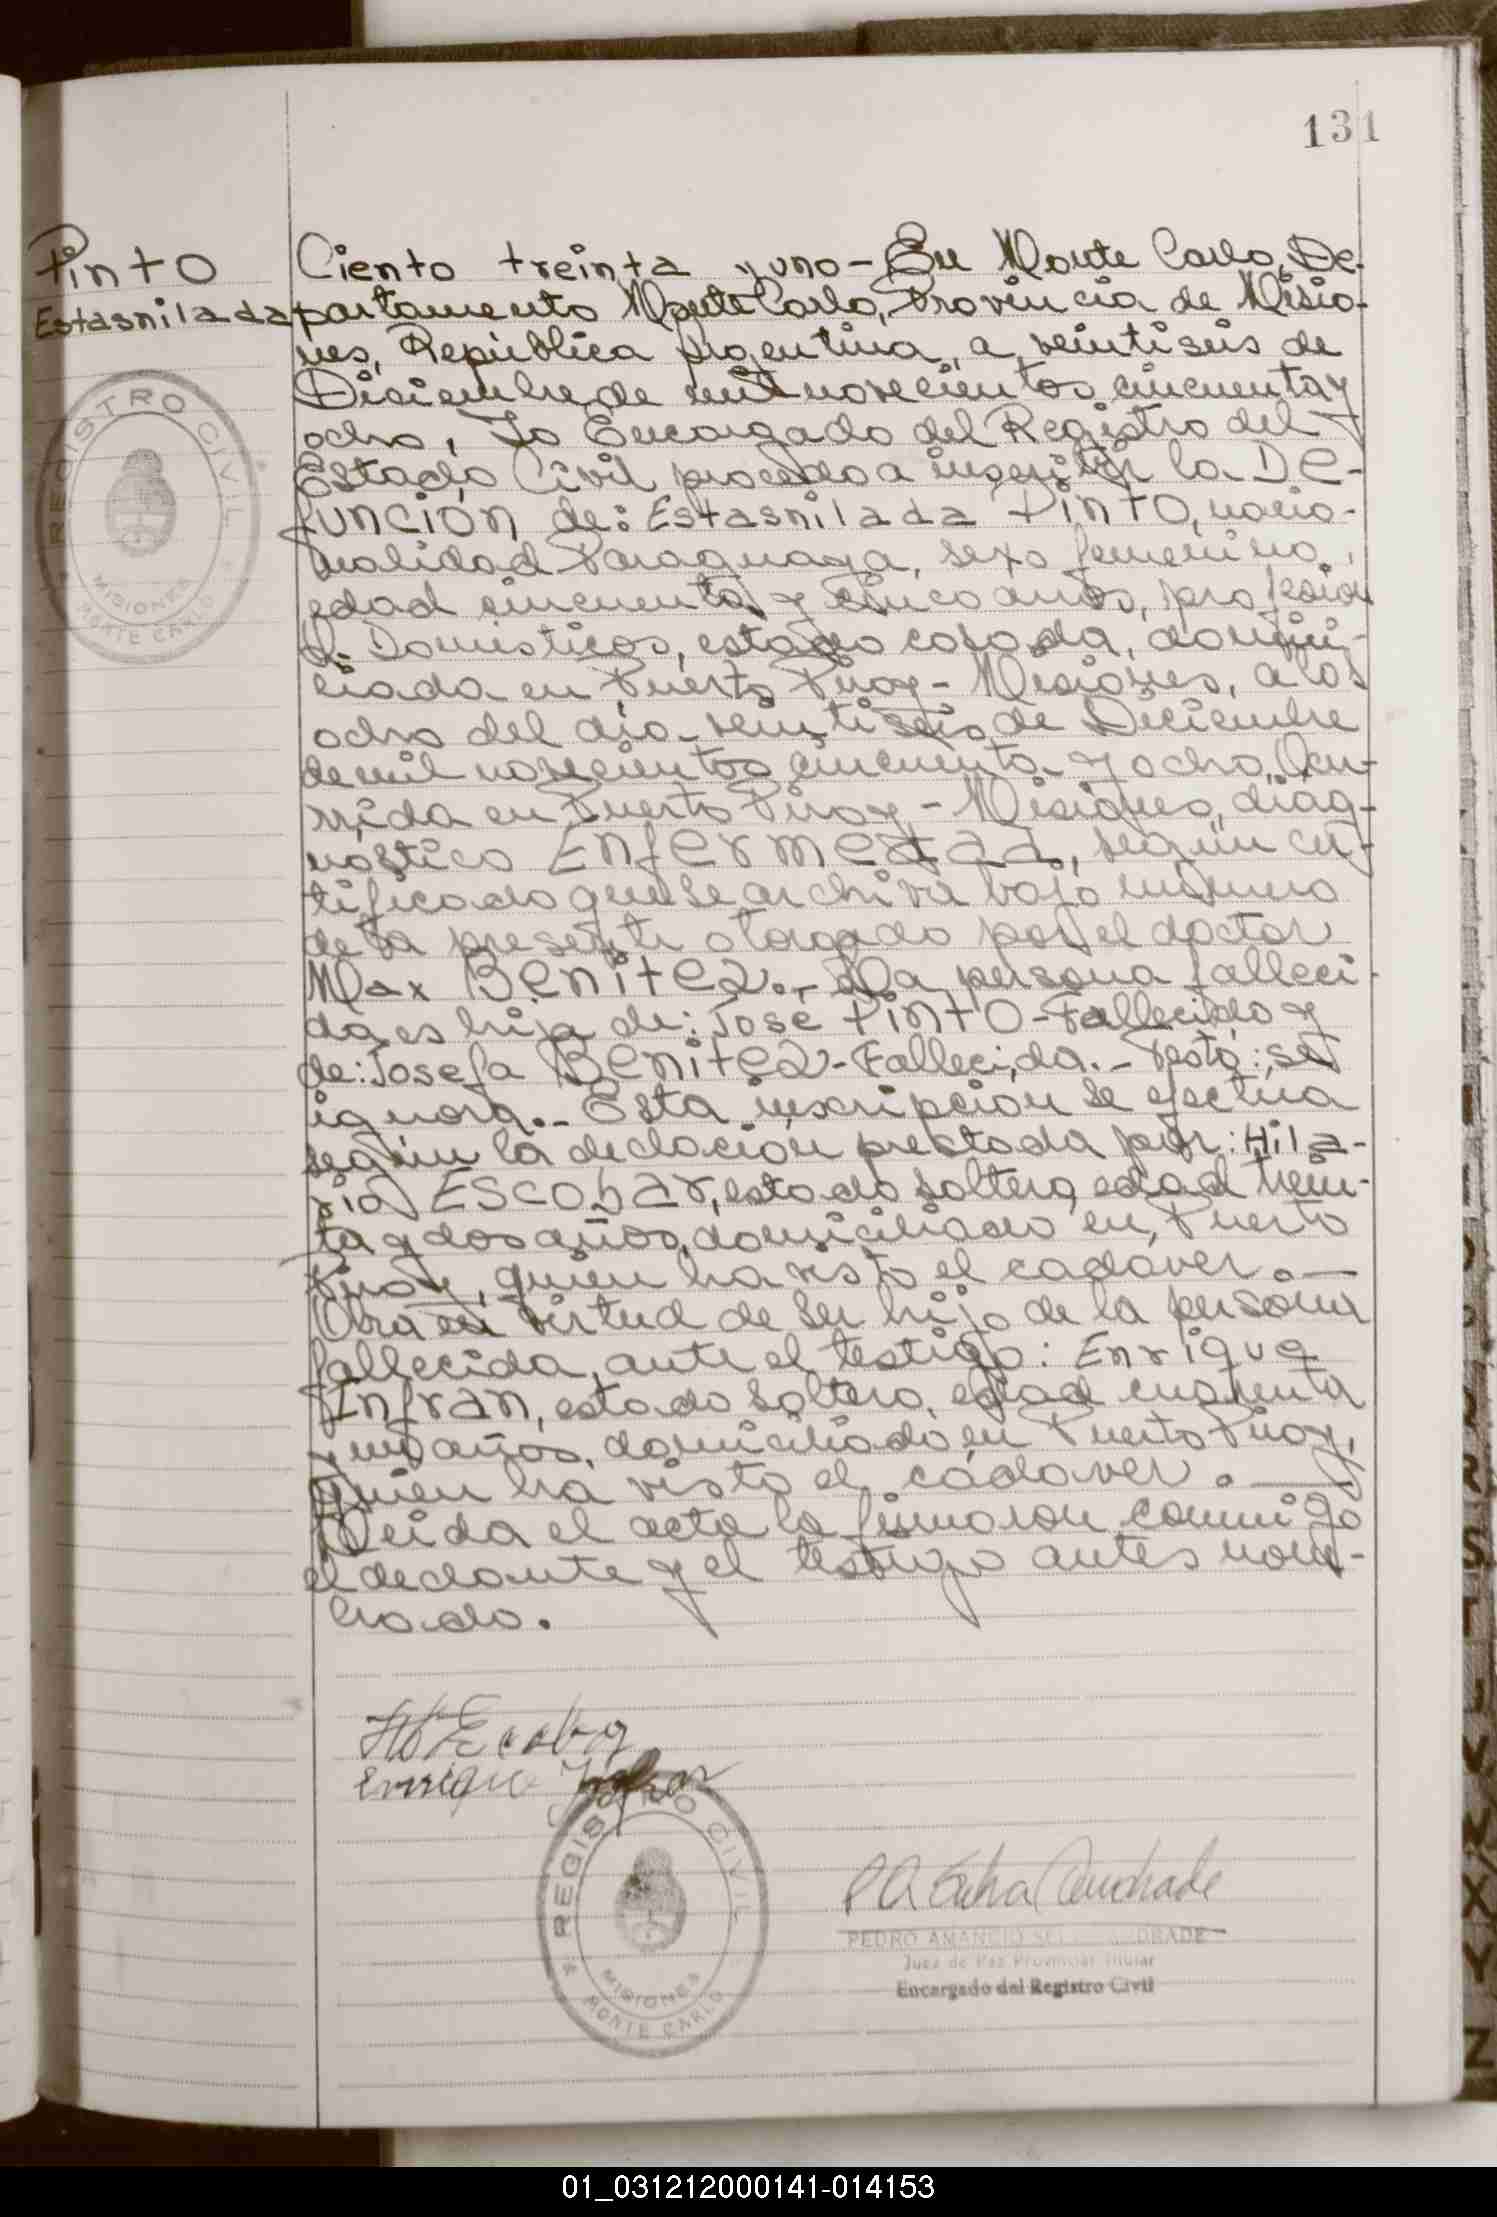 131
Pinto
Estasnilada
Ciento treinta y uno - En Monte Carlo, De-
partamento Monte Carlo, Provincia de Misio-
nes, República Argentina, a veintiseis de
Diciembre de mil novecientos cincuenta y
ocho, Yo Encargado del Registro del
Estado Civil procedo a inscribir la De-
función de: Estasnilada Pinto, nacio-
nalidad Paraguaya, sexo femenino,
edad cincuenta y cinco años, profesión
Q. Domésticos, estado casada, domici-
liada en Puerto Piray - Misiones, a las
ocho del día veintiseis de Diciembre
de mil novecientos cincuenta y ocho, Ocu-
rrida en Puerto Piray - Misiones, diag-
nóstico Enfermedad, según cer-
tificado que se archiva bajo número
de la presente otorgado por el doctor
Max Benitez.- La persona falleci-
da es hija de: José Pinto - Fallecido y
de: Josefa Benitez - Fallecida.- Testó: se
ignora.- Esta inscripción se efectúa
según la declación prestada por: Hila-
rio Escobar, estado soltero, edad trein-
ta y dos años, domiciliado en Puerto
Piray, quien ha visto el cadáver.—
Obra en virtud de ser hijo de la persona
fallecida, ante el testigo: Enrique
Infran, estado soltero, edad cuarenta
y un años, domiciliado en Puerto Piray,
quien ha visto el cadáver.—
Leida el acta la firmaron conmigo
el declante y el testigo antes nom-
brado.
Enrique Infran
REGISTRO CIVIL
MISIONES
MONTE CARLO
REGISTRO CIVIL
MISIONES
MONTE CARLO
P A Silva Andrade
PEDRO AMANCIO SILVA ANDRADE
Juez de Paz Provincial Titular
Encargado del Registro Civil
01_031212000141-014153